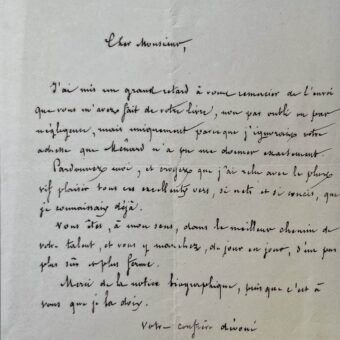 Cher Monsieur,
J'ai mis un grand retard à vous remercier de l'envoi
que vous m'avez fait de votre livre, non par oubli ou par
négligence, mais uniquement parce que j'ignorais votre
adresse que Ménard n'a pu me donner exactement
Pardonnez moi, et croyez que j'ai relu avec le plus
vif plaisir tous ces excellents vers, si nets et si concis, que
je connaissais déjà.
Vous êtes, à mon sens, dans le meilleur chemin de
votre talent, et vous y marchez, de jour en jour, d'un pas
plus sûr et plus ferme.
Merci de la notice biographique, puisque c'est à
vous que je la dois.
Votre confrère dévoué